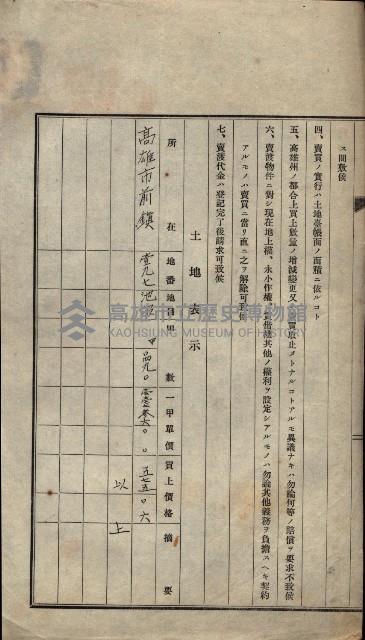 ス間敷候
四、賣買ノ實行ハ土地臺帳面ノ面積ニ依ルコト
五、高雄州ノ都合上買上數量ノ增減變更又ハ買取止メトナルコトアルモ異議ナキハ勿論何等ノ賠償ヲ要求不致候
六、賣渡物件ニ對シ現在地上權、永小作權、賃借權其他ノ權利ヲ設定シアルモノハ勿論其他義務ヲ負擔スヘキ契約
アルモノハ賣買ニ當リ直ニ之ヲ解除可致候
七、賣渡代金ハ登記完了後請求可致候
土地表示
所在 地番 地目 甲數 一甲單價 買上價格 摘要
高雄市前鎮 壹九七 池沼
以上
高雄市立歷史博物館
KAOHSIUNG MUSEUM OF HISTORY